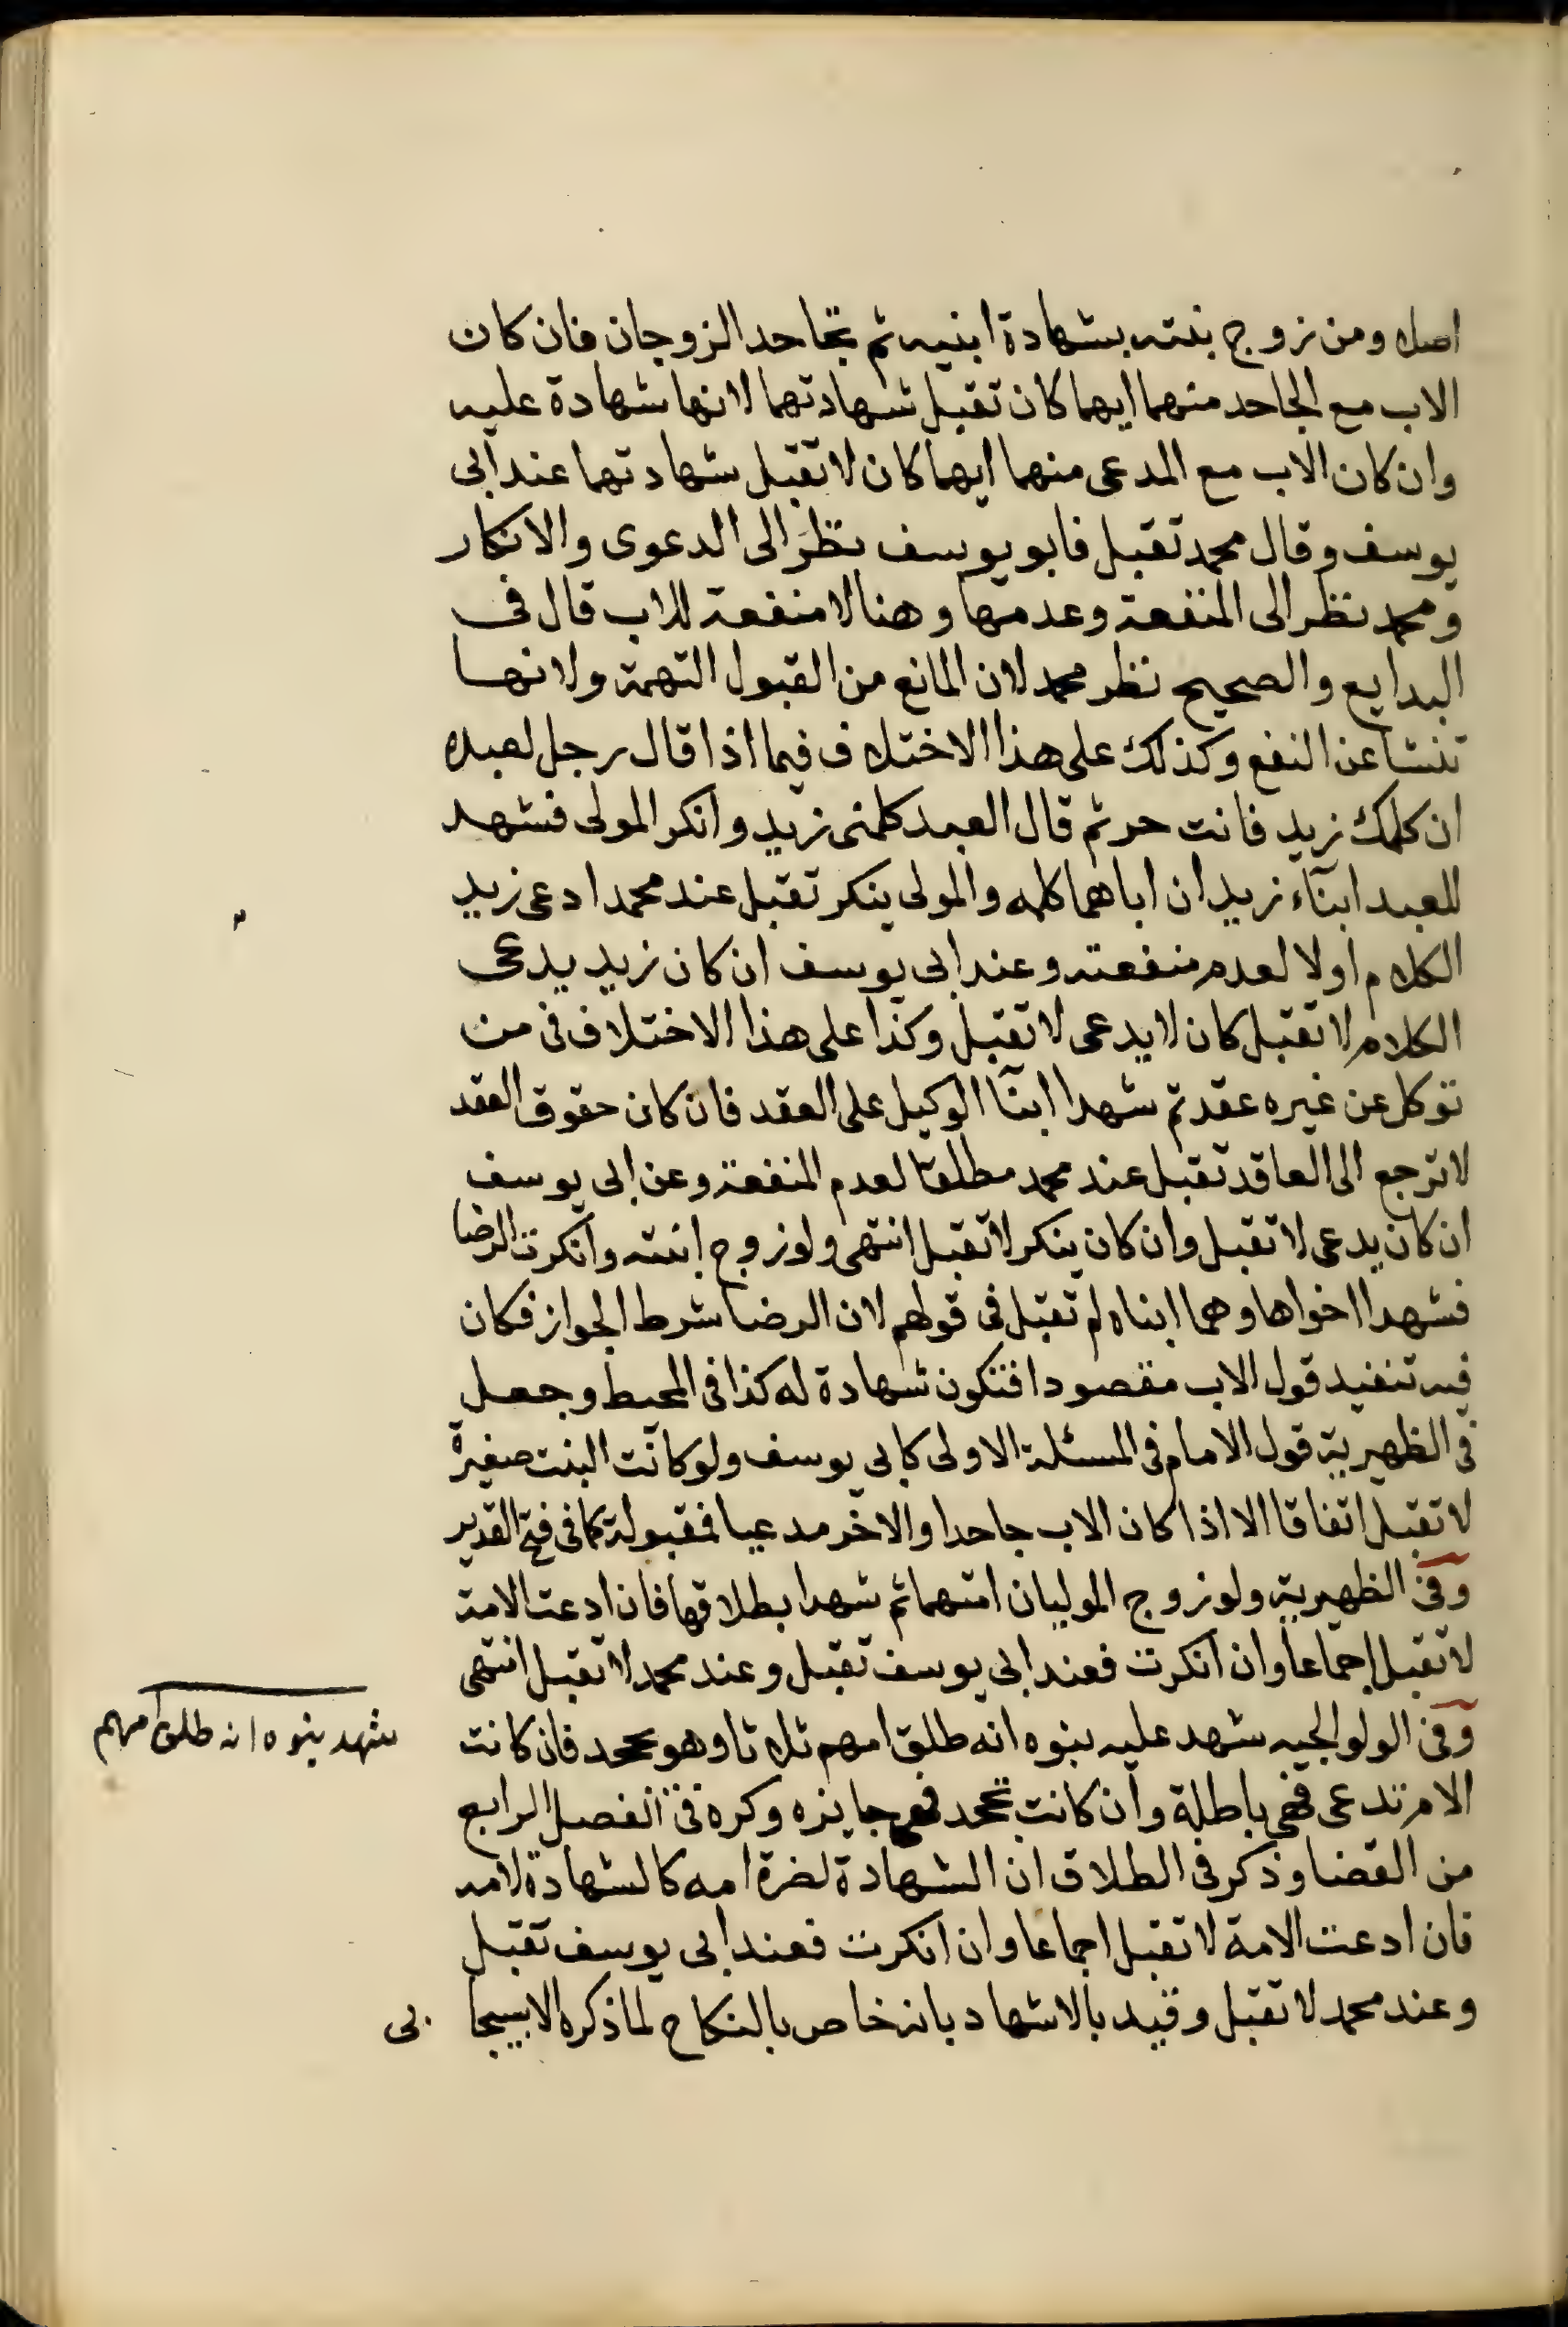 اصلا ومن زوج بنته بشهادة ابنيه ثم تجاحد الزوجان فان كان
الاب مع الجاحد منهما ايهما كان تقبل شهادتهما لانها شهادة عليه
وان كان الاب مع المدعى منهما ايهما كان لا تقبل شهادتهما عند ابى
يوسف وقال محمد تقبل فابو يوسف نظر الى الدعوى والانكار
ومحمد نظر الى المنفعة وعدمها وهنا لا منفعة للاب قال فى
البدايع والصحيح نظر محمد لان المانع من القبول التهمة ولانها
تنشا عن النفع وكذلك على هذا الاختلاف فيما اذا قال رجل لعبده
ان كلمك زيد فانت حر ثم قال العبد كلمنى زيد وانكر المولى فشهد
للعبد ابناء زيد ان اباهما كلمه والمولى ينكر تقبل عند محمد ادعى زيد
الكلام اولا لعدم منفعته وعند ابى يوسف ان كان زيد يدعى
الكلام لا تقبل كان لا يدعى لا تقبل وكذا على هذا الاختلاف فى من
توكل عن غيره عقد ثم شهدا ابنا الوكيل على العقد فان كان حقوق العقد
لا ترجع الى العاقد تقبل عند محمد مطلقا لعدم المنفعة وعن ابى يوسف
ان كان يدعى لا تقبل وان كان ينكر لا تقبل انتهى ولو زوج ابنته وانكرت الرضا
فشهدا اخواها وهما ابناه لم تقبل فى قولهم لان الرضا شرط الجواز فكان
فيه تنفيد قول الاب مقصودا فتكون شهادة له كذا فى المحيط وجعل
فى الظهيرية قول الامام فى المسئلة الاولى كابى يوسف ولو كانت البنت صغيرة
لا تقبل اتفاقا الا اذا كان الاب جاحدا والاخر مدعيا فمقبولة كما فى فتح القدير
وفى الظهيرية ولو زوج الموليان امتهما ثم شهدا بطلاقها فان ادعت الامة
لا تقبل اجماعا وان انكرت فعند ابى يوسف تقبل وعند محمد لا تقبل انتهى
وفى الولوالجيه شهد عليه بنوه انه طلق امهم ثلاثا وهو يجحد فان كانت
الام تدعى فهى باطلة وان كانت تجحد فهى جايزه وكره فى الفصل الرابع
من القضا وذكر فى الطلاق ان الشهادة لضرة امه كالشهادة لامه
فان ادعت الامة لا تقبل اجماعا وان انكرت فعند ابى يوسف تقبل
وعند محمد لا تقبل وقيد بالاشهاد بانه خاص بالنكاح لما ذكره الاسبيجابى
شهد بنوه انه طلق امهم